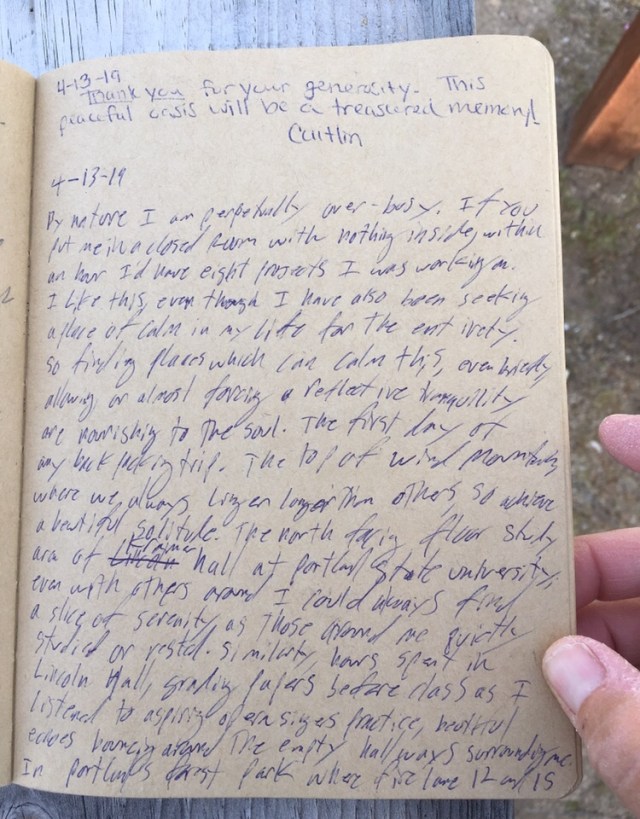 4-13-19
Thank you for your generosity. This
peaceful oasis will be a treasured memory.
Caitlin
4-13-19
By nature I am perpetually over-busy. If you
put me in a closed room with nothing inside, within
an hour I'd have eight projects I was working on.
I like this, even though I have also been seeking
a place of calm in my life for the entirety.
So finding places which can calm this, even briefly,
allowing, or almost forcing a reflective tranquility
are nourishing to the soul. The first day of
any backpacking trip. The top of Wind Mountain,
where we always linger longer than others, so achieve
a beautiful solitude. The north facing floor study
area of Cramer Hall at Portland State University,
even with others around I could always find
a slice of serenity, as those around me quietly
studied or rested. Similarly, hours spent in
Lincoln Hall, grading papers before class as I
listened to aspiring opera singers practice, beautiful
echoes bouncing around the empty hallways surrounding me.
In Portland's Forest Park where fire lane 12 and 15